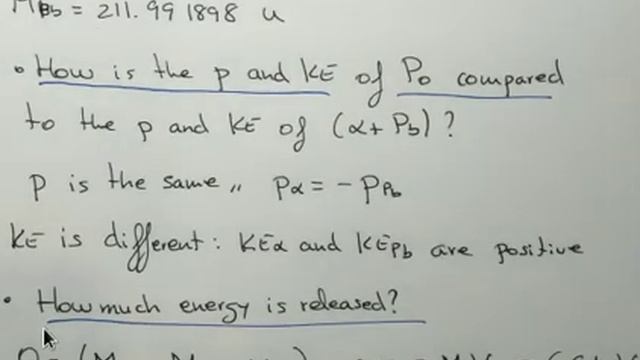 M_Pb = 211.991898 u
• How is the p and KE of Po compared
to the p and KE of (α + Pb)?
P is the same ,, Pα = - P_Pb
KE is different: KEα and KE_Pb are positive
• How much energy is released?